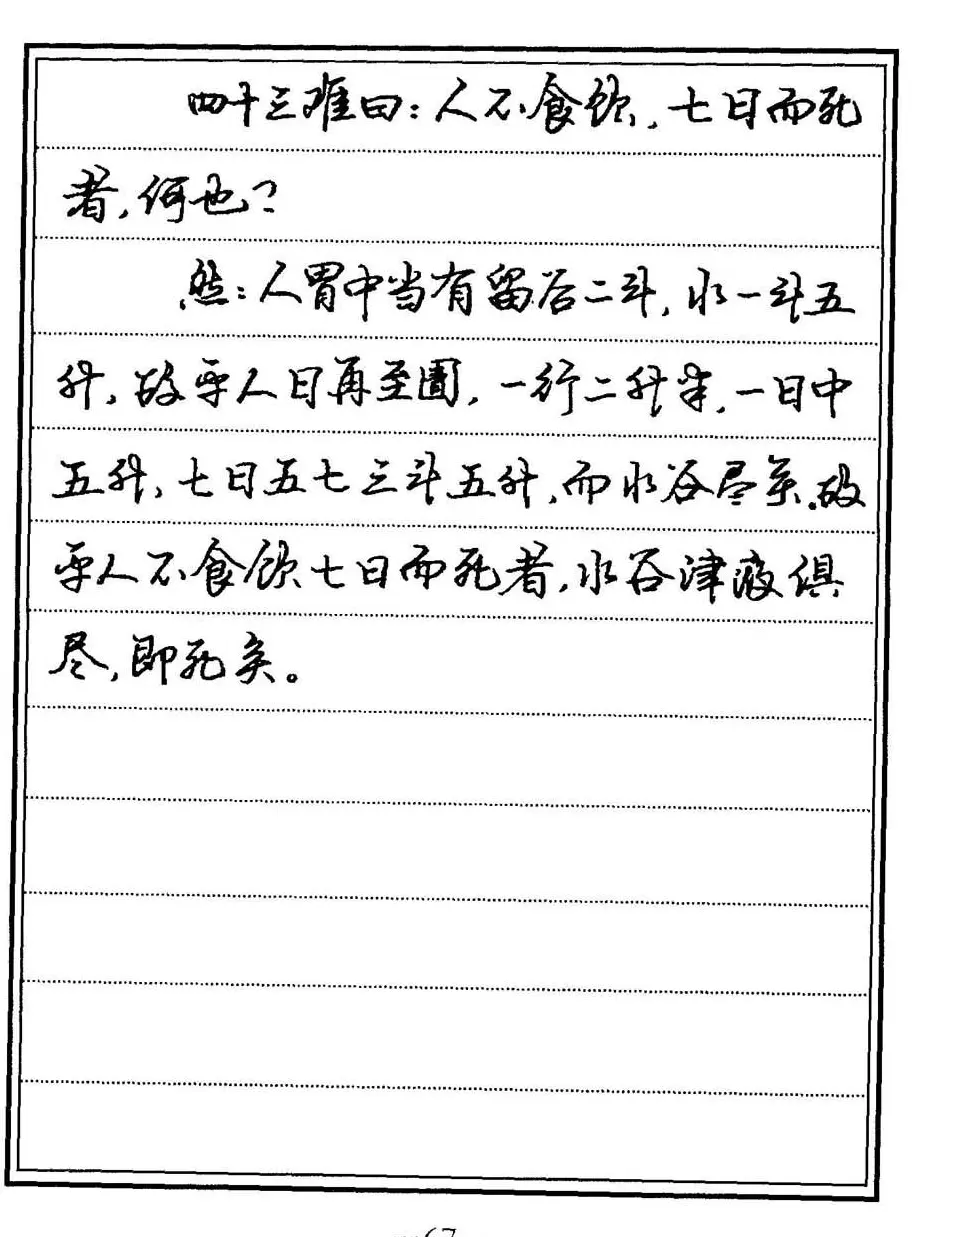 四十三难曰：人不食饮，七日而死
者，何也？
然：人胃中当有留谷二斗，水一斗五
升，故平人日再至圊，一行二升半，一日中
五升，七日五七三斗五升，而水谷尽矣。故
平人不食饮七日而死者，水谷津液俱
尽，即死矣。
67